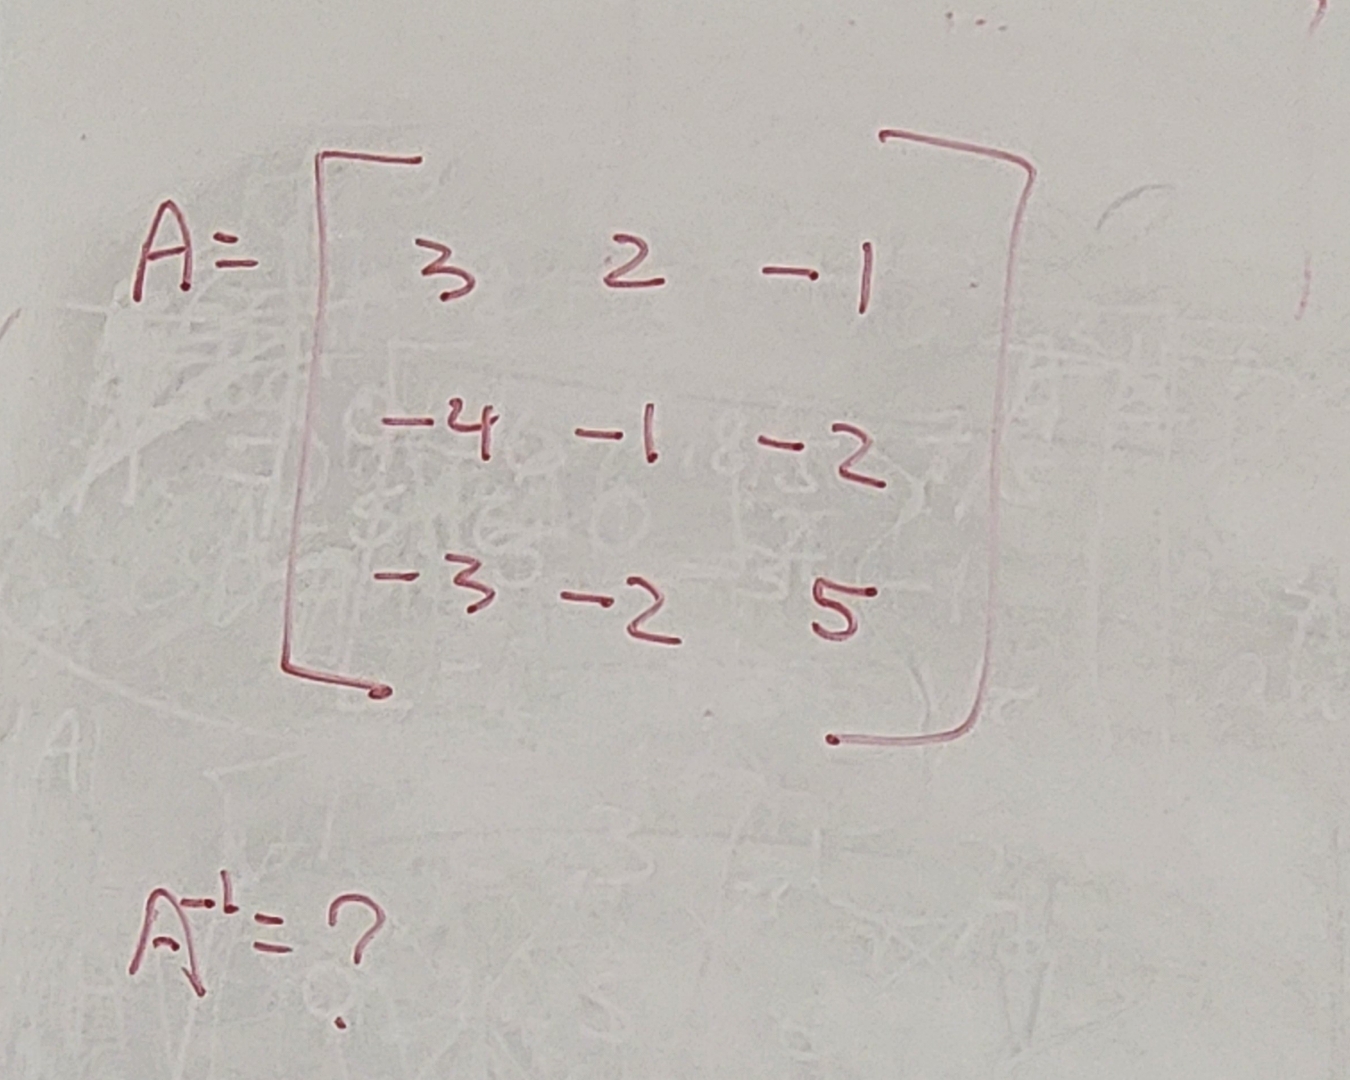 A= [ 3 2 -1
-4 -1 -2
-3 -2 5 ]
A⁻¹ = ?